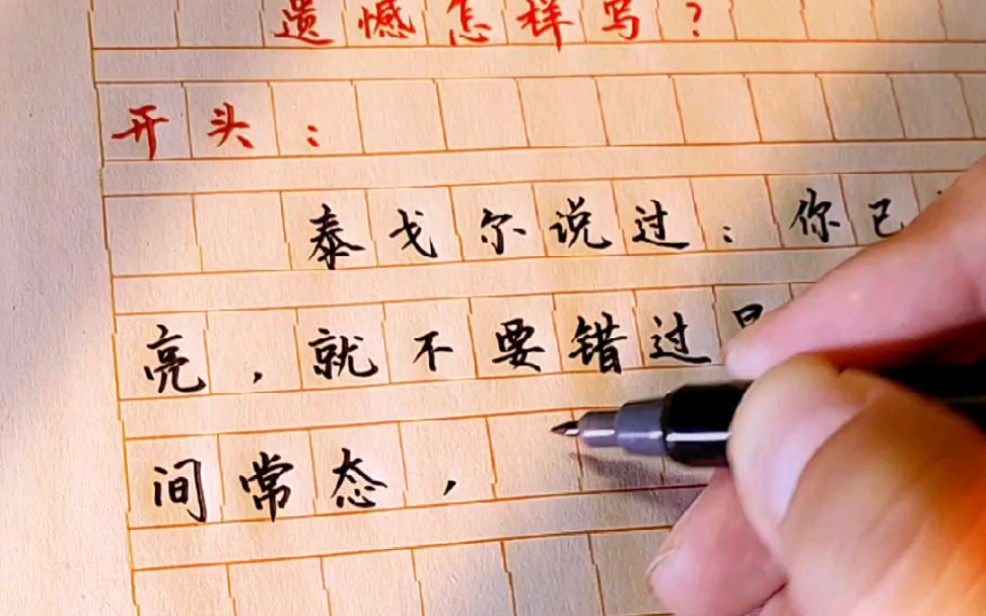 遗憾怎样写？
开头：
泰戈尔说过：你已
亮，就不要错过
间常态，